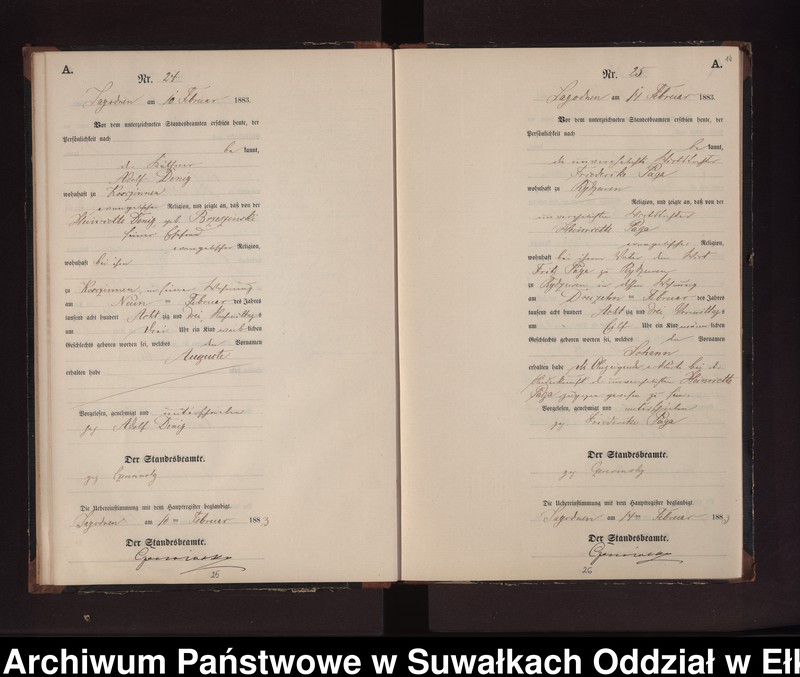 A.
Nr. 24
Lagodnen am 10 Februar 1883.
Vor dem unterzeichneten Standesbeamten erschien heute, der
Persönlichkeit nach
be kannt,
de Käthner
Adolf Donig
wohnhaft zu
evangelischer Religion, und zeigte an, daß von der
Heinriette Donig geb
seiner Ehefrau
evangelischer Religion,
wohnhaft bei ihm
zu in seiner Wohnung
am Neun ten Februar des Jahres
tausend acht hundert Acht zig und drei Nachmittags
um drei Uhr ein Kind weib lichen
Geschlechts geboren worden sei, welches den Vornamen
Auguste
erhalten habe
Vorgelesen, genehmigt und unterschrieben
gez Adolf Donig
Der Standesbeamte.
gez
Die Uebereinstimmung mit dem Hauptregister beglaubigt.
Lagodnen am 10 ten Februar 1883
Der Standesbeamte.
25
A.
Nr. 25
Lagodnen am 14 Februar 1883.
Vor dem unterzeichneten Standesbeamten erschien heute, der
Persönlichkeit nach
be kannt,
die unverehelichte Wirthstochter
Friederike Paga
wohnhaft zu
Religion, und zeigte an, daß von der
unverehelichten Wirthstochter
Heinriette Paga
evangelischer Religion,
wohnhaft bei ihrem Vater dem Wirth
Fritz Paga zu
zu in dessen Wohnung
am Dreizehn ten Februar des Jahres
tausend acht hundert Acht zig und drei Vormittags
um Elf Uhr ein Kind männ lichen
Geschlechts geboren worden sei, welches den Vornamen
Johann
erhalten habe die Anzeigende erklärte bei der
Niederkunft der unverehelichten Heinriette
Paga zugegen gewesen zu sein.
Vorgelesen, genehmigt und unterschrieben
gez Friederike Paga
Der Standesbeamte.
gez
Die Uebereinstimmung mit dem Hauptregister beglaubigt.
Lagodnen am 14 ten Februar 1883
Der Standesbeamte.
26
Archiwum Państwowe w Suwałkach Oddział w Ełk